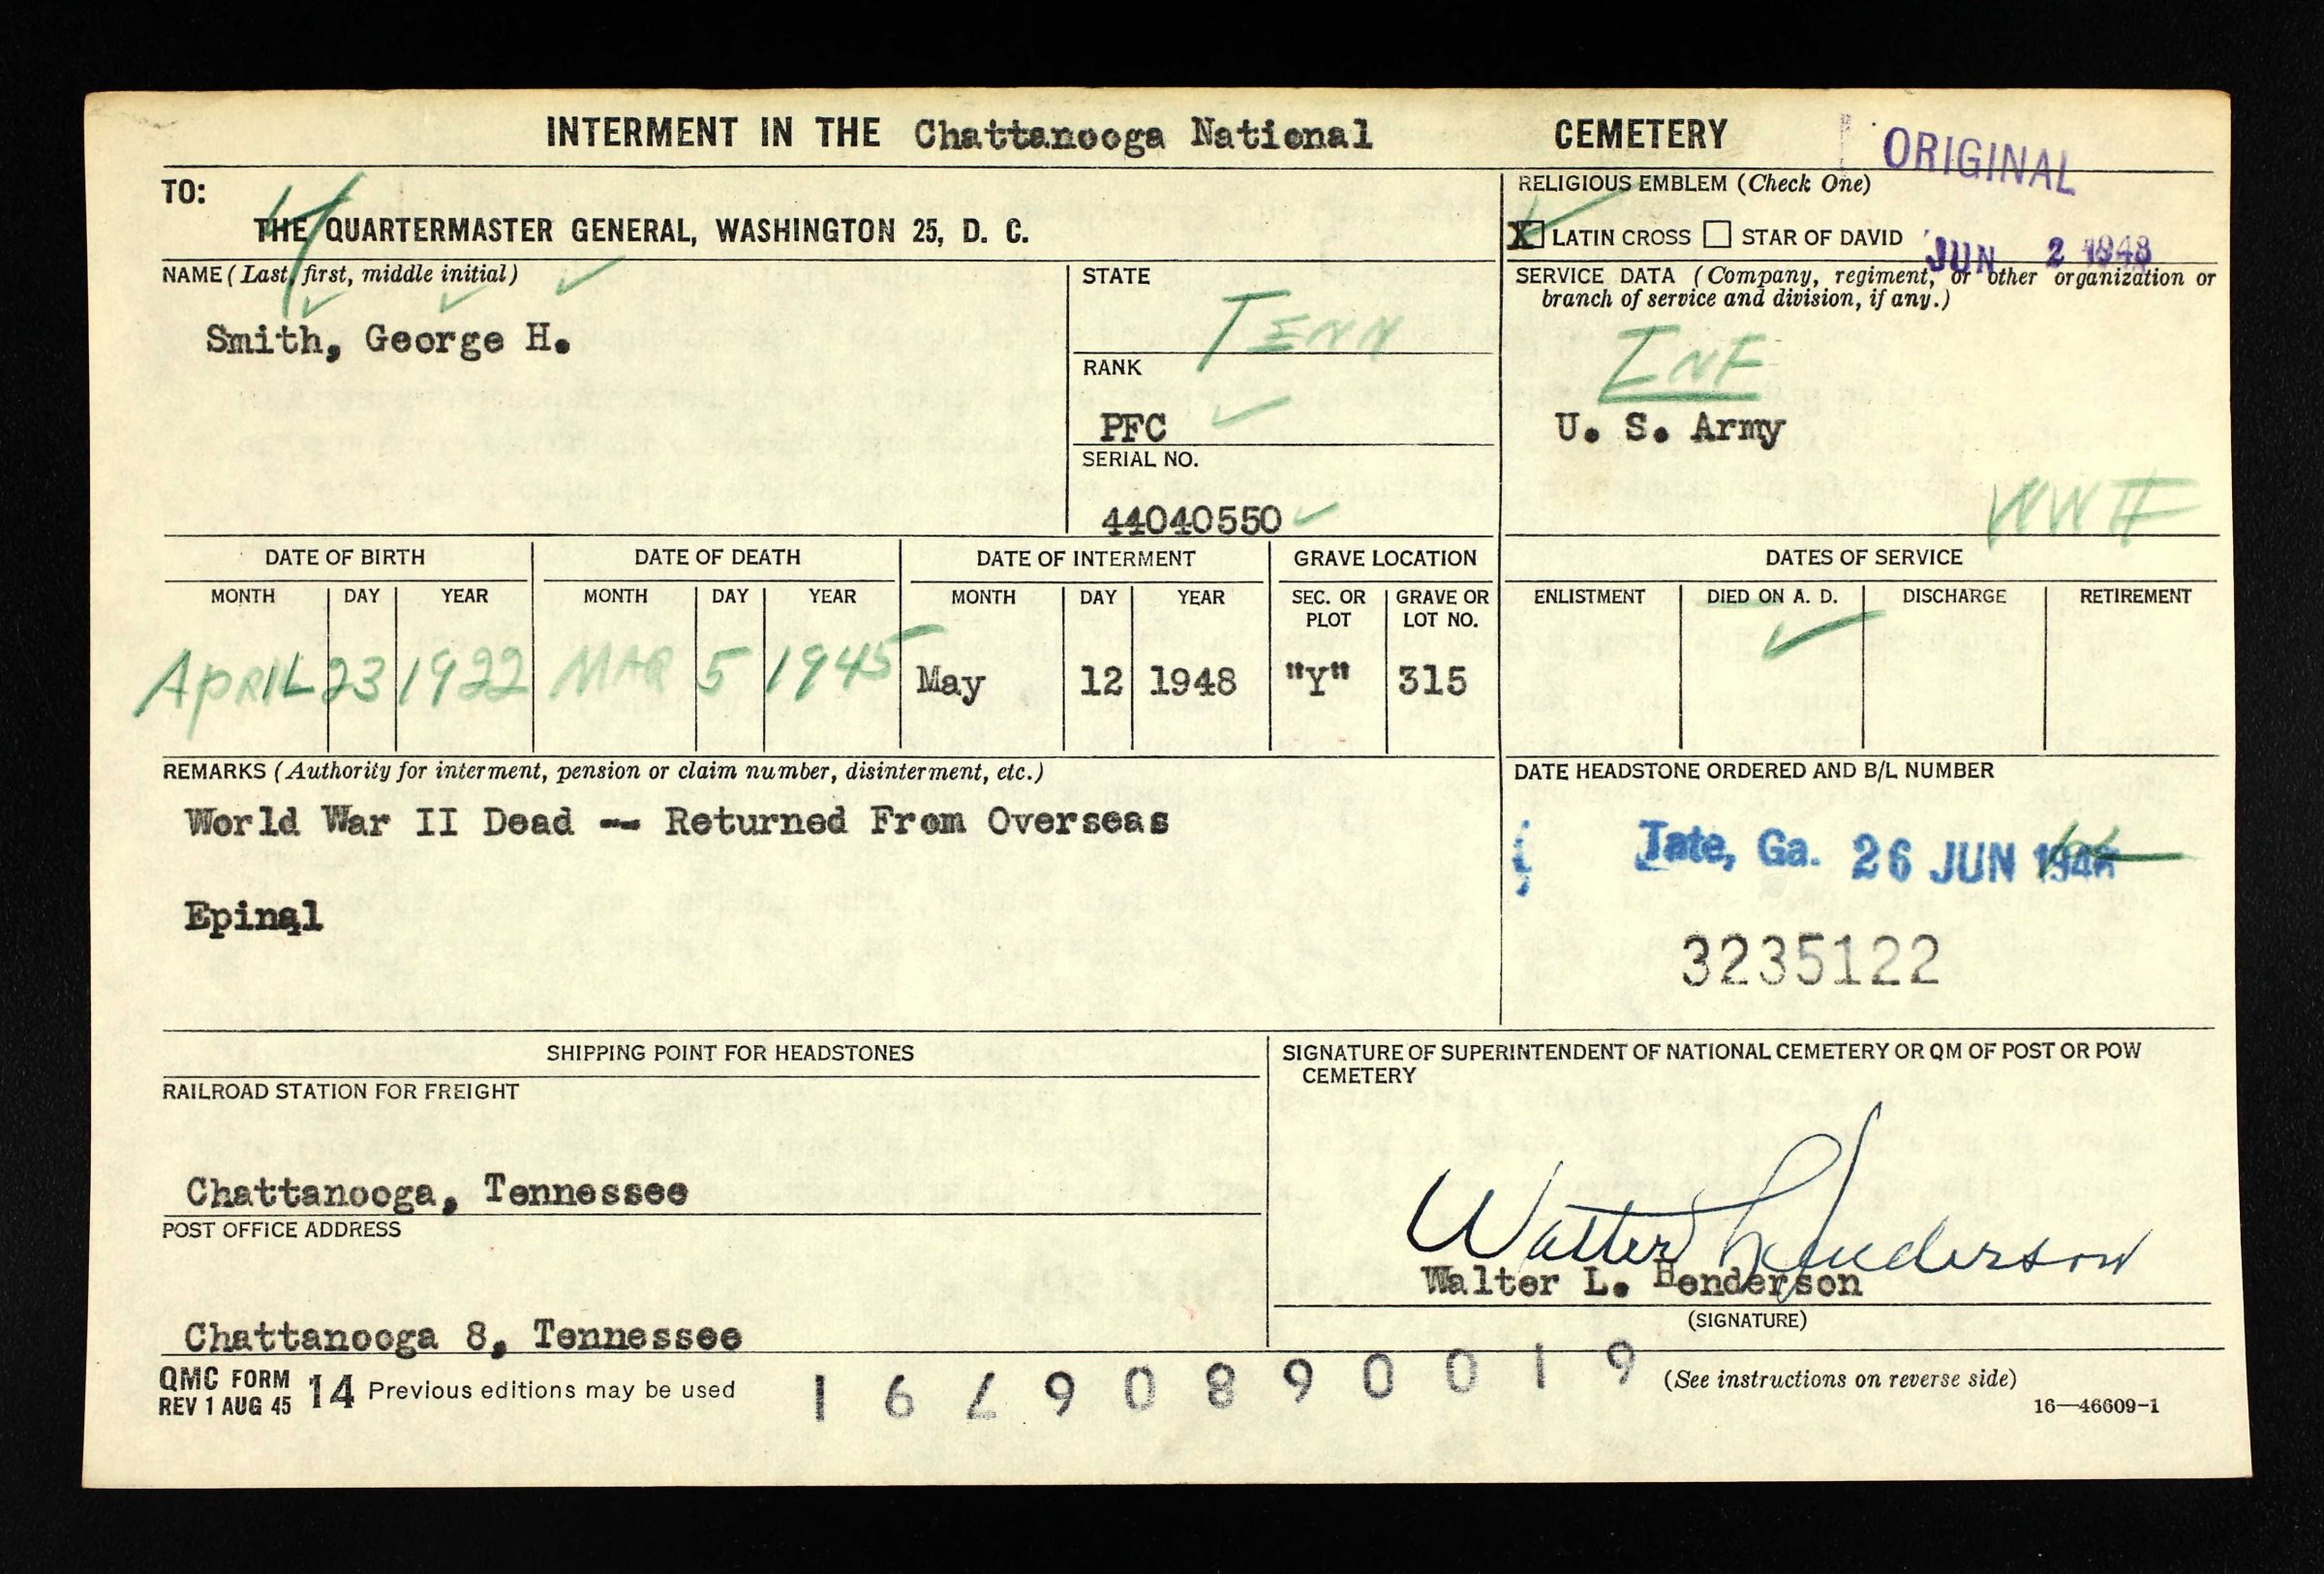 INTERMENT IN THE Chattanooga National CEMETERY
ORIGINAL
TO:
THE QUARTERMASTER GENERAL, WASHINGTON 25, D. C.
RELIGIOUS EMBLEM (Check One)
X LATIN CROSS STAR OF DAVID
JUN 2 1948
NAME (Last, first, middle initial)
Smith, George H.
STATE
TENN
RANK
PFC
SERIAL NO.
44040550
SERVICE DATA (Company, regiment, or other organization or
branch of service and division, if any.)
INF
U. S. Army
WW II
DATE OF BIRTH DATE OF DEATH DATE OF INTERMENT GRAVE LOCATION DATES OF SERVICE
MONTH DAY YEAR MONTH DAY YEAR MONTH DAY YEAR SEC. OR PLOT GRAVE OR LOT NO. ENLISTMENT DIED ON A. D. DISCHARGE RETIREMENT
APRIL 23 1922 MAR 5 1945 May 12 1948 "Y" 315 ✓
REMARKS (Authority for interment, pension or claim number, disinterment, etc.)
World War II Dead -- Returned From Overseas
Epinal
DATE HEADSTONE ORDERED AND B/L NUMBER
Tate, Ga. 26 JUN 1948
3235122
SHIPPING POINT FOR HEADSTONES
RAILROAD STATION FOR FREIGHT
Chattanooga, Tennessee
POST OFFICE ADDRESS
Chattanooga 8, Tennessee
SIGNATURE OF SUPERINTENDENT OF NATIONAL CEMETERY OR QM OF POST OR POW
CEMETERY
Walter L Henderson
Walter L. Henderson
(SIGNATURE)
QMC FORM 14 Previous editions may be used
REV 1 AUG 45
(See instructions on reverse side)
16—46609-1